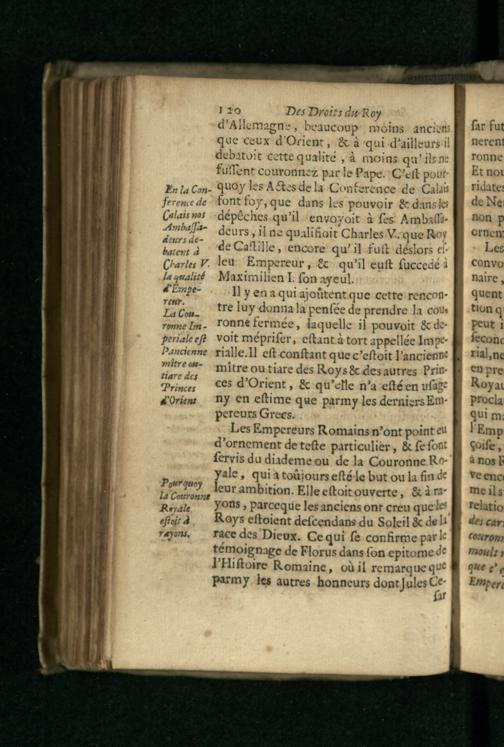 120 Des Droits du Roy
d'Allemagne, beaucoup moins anciens
que ceux d'Orient, & à qui d'ailleurs il
debatoit cette qualité, à moins qu'ils ne
fussent couronnez par le Pape. C'est pour-
quoy les Actes de la Conference de Calais
font foy, que dans les pouvoir & dans les
dépêches qu'il envoyoit à ses Ambassa-
deurs, il ne qualifioit Charles V. que Roy
de Castille, encore qu'il fust déslors es-
leu Empereur, & qu'il eust succedé à
Maximilien I. son ayeul.
Il y en a qui ajoûtent que cette rencon-
tre luy donna la pensée de prendre la cou-
ronne fermée, laquelle il pouvoit & de-
voit mépriser, estant à tort appellée Impe-
rialle. Il est constant que c'estoit l'ancienne
mître ou tiare des Roys & des autres Prin-
ces d'Orient, & qu'elle n'a esté en usage
ny en estime que parmy les derniers Em-
pereurs Grecs.
Les Empereurs Romains n'ont point eu
d'ornement de teste particulier, & se sont
servis du diademe ou de la Couronne Ro-
yale, qui a toûjours esté le but ou la fin de
leur ambition. Elle estoit ouverte, & à ra-
yons, parceque les anciens ont creu que les
Roys estoient descendans du Soleil & de la
race des Dieux. Ce qui se confirme par le
témoignage de Florus dans son epitome de
l'Histoire Romaine, où il remarque que
parmy les autres honneurs dont Jules Ce-
sar
En la Con-
ference de
Calais nos
Ambassa-
deurs de-
batent à
Charles V.
la qualité
d'Empe-
reur.
La Cou-
ronne Im-
periale est
l'ancienne
mître ou-
tiare des
Princes
d'Orient
Pourquoy
la Couronne
Royale
estoit à
rayons.
sar fut
nerent
ronne
Et nou
ridates
de Ne
non p
ornem
Les
convo
naire,
quent
tion q
peut i
second
rial, ne
en pre
Royau
procla
qui ma
l'Emp
çoise,
à nos R
ve enc
me il s
relatio
des car
couronn
moult r
que c'e
Emperi